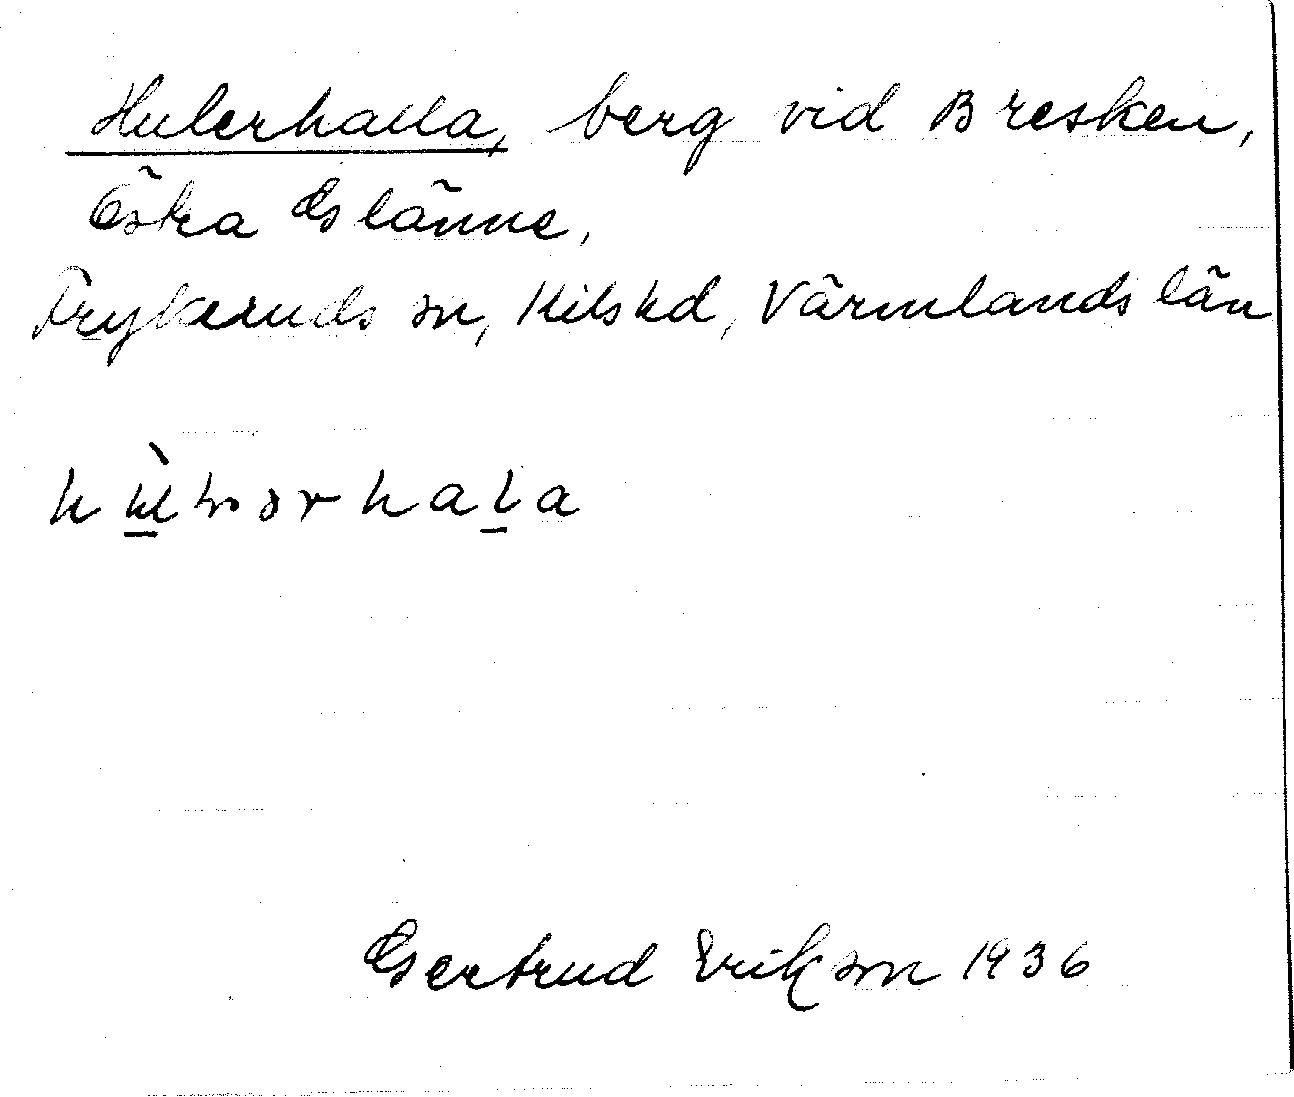 Hulerhalla, berg vid Bresken,
Östra Glänne,
Frykeruds sn, Kils hd, Värmlands län
Gertrud Erikson 1936